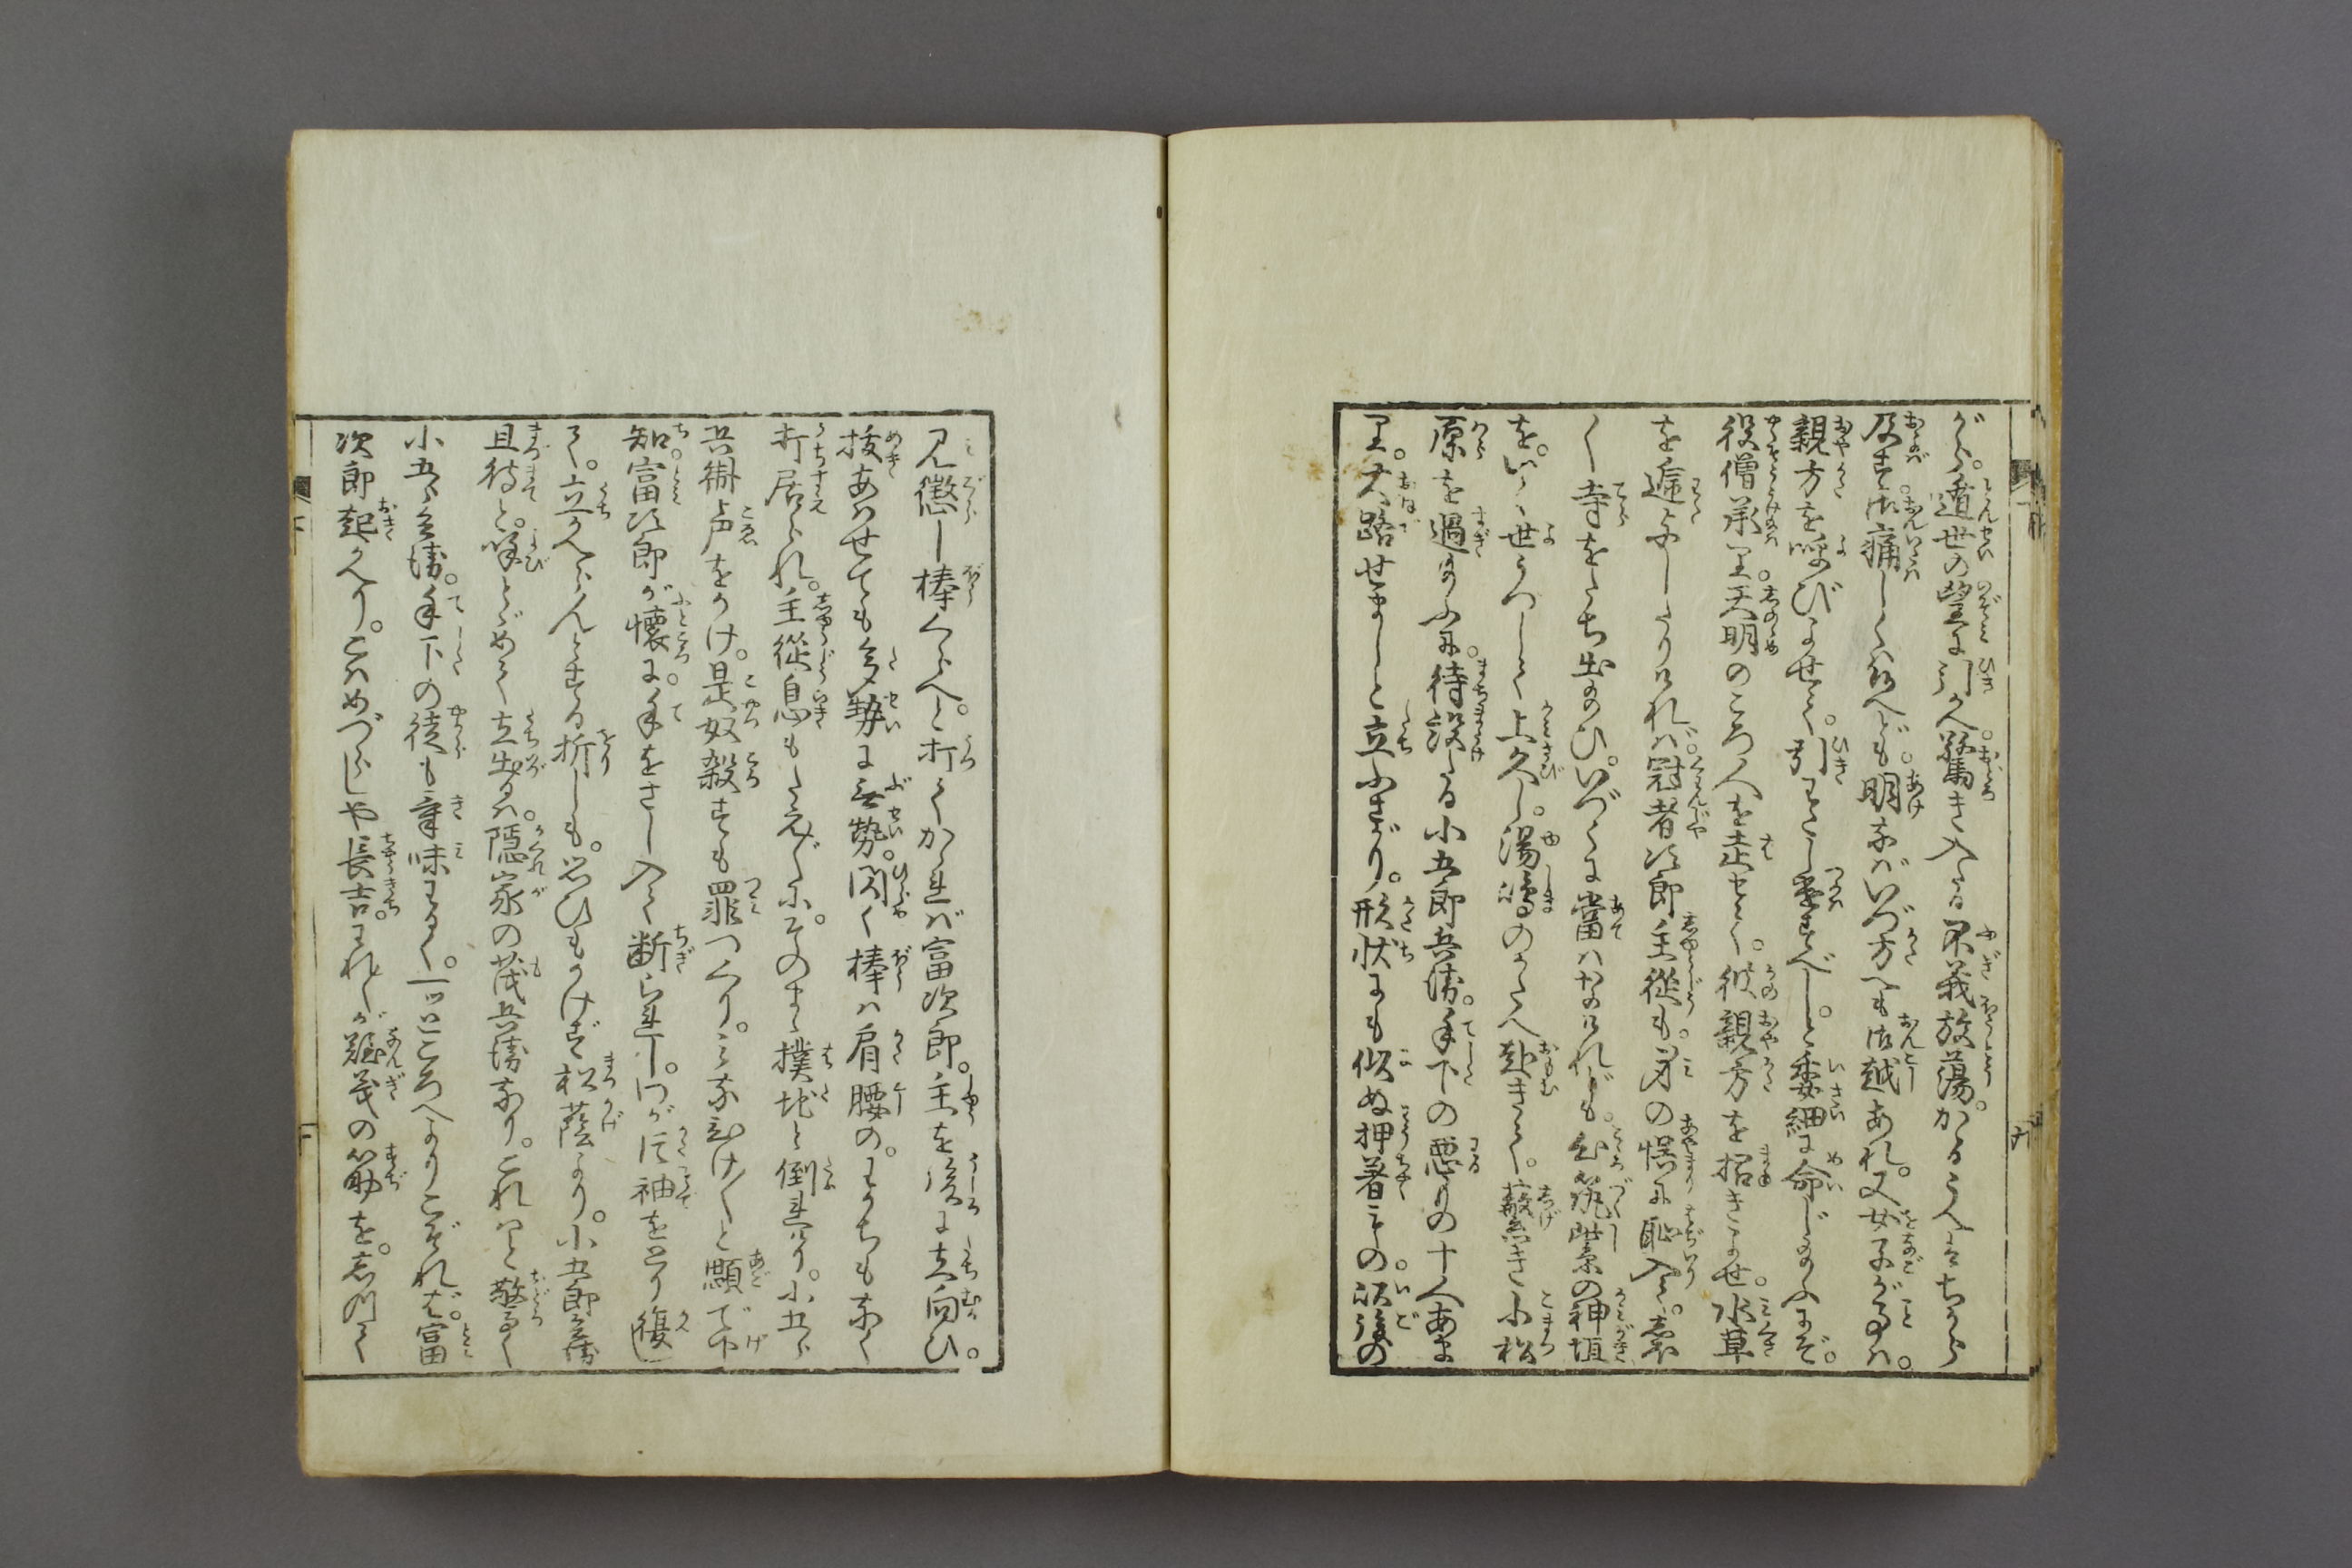 がら。遁世の望に引かへ。驚き入たる不義放蕩。かゝるうへはちから
及ばず。御痛しくは候へども。明なばいづ方へも御越あれ。又女子が事は。
親方を呼びよせて。引わたし遣すべし。と委細に命じ給ふにぞ。
役僧承り。天明のころ人を走せて。彼親方を招きよせ。水草
を逓与したりければ。冠者次郎主従も。身の誤に恥入て。
く寺をたち出給ひ。いづくに當はなけれども。心筑紫の神垣
を。いく世うつして上久し。湯嶋のかたへ赴きて。蔽繁き小松
原を過給ふに。待設たる小五郎兵衛。手下の悪者の十人あま
り。大路せましと立ふさがり。形状にも似ぬ押着もの。後の
見懲し棒くらへ。と打てかゝれば富次郎。主を後に立向ひ。
抜あはせても多勢に無勢。閃く棒は肩腰の。わかちもなく
打居られ。主従息もたえ〴〵に。そのまゝ撲地と倒れけり。小五郎
兵衛声をかけ。是奴殺すも罪つくり。みなひけ〳〵と顋で下
知。富次郎が懐に。手をさし入て断らし。わが片袖をとり復し
て。立かへらんとする折しも。思ひもかけず松蔭より。小五郎兵衛
且待と。呼とゞめて立出るは。隠家の茂兵衛なり。これはと驚く
小五郎兵衛。手下の徒も気味わるく。一トところへよりこぞれば。富
次郎起かへり。こはめづらしや長吉。われ〳〵が難義の筋を。きゝ